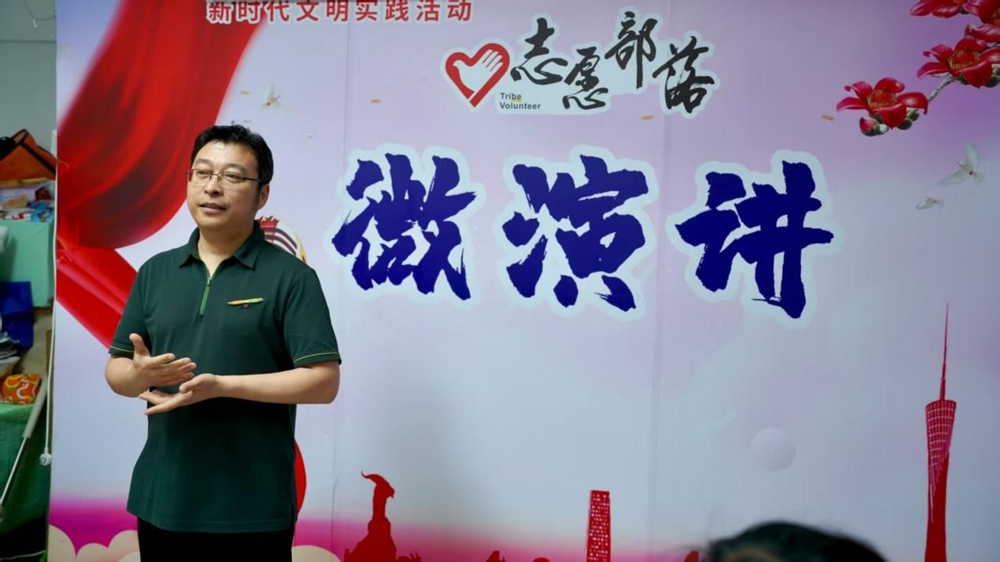 新时代文明实践活动
志愿部落
Tribe
Volunteer
微演讲